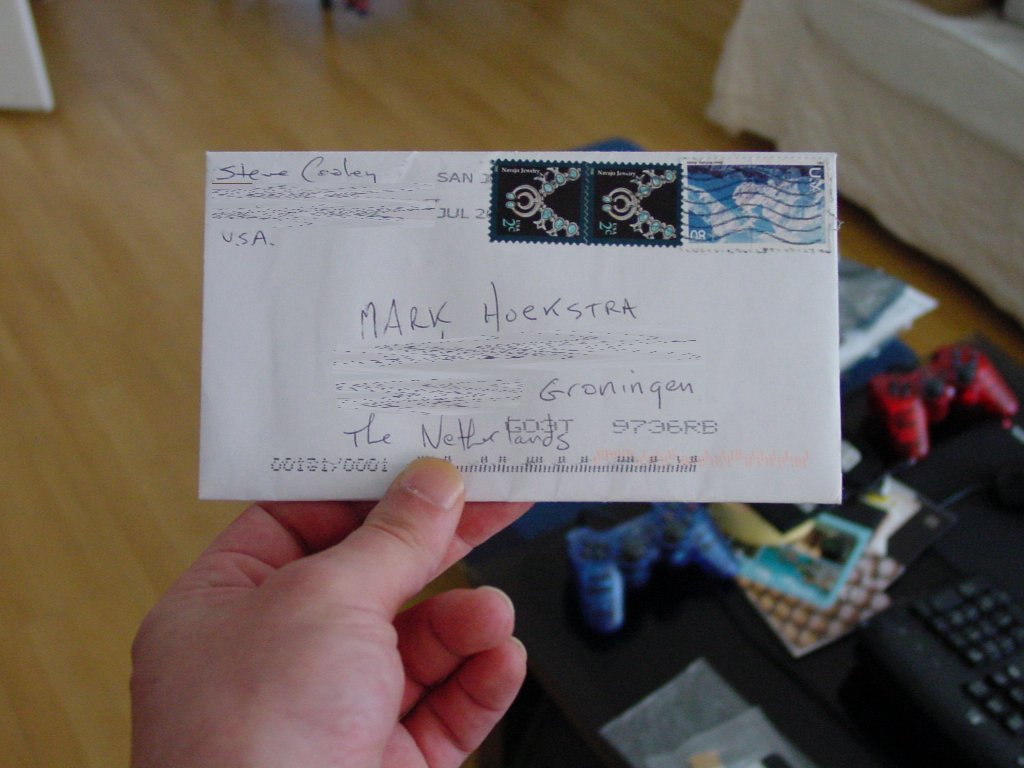 Steve Cooley
SAN J
JUL 2
USA.
Navajo Jewelry
USA 2c
Navajo Jewelry
USA 2c
USA
80
MARK HOEKSTRA
Groningen
The Netherlands
GO3T 9736RB
00181/0001